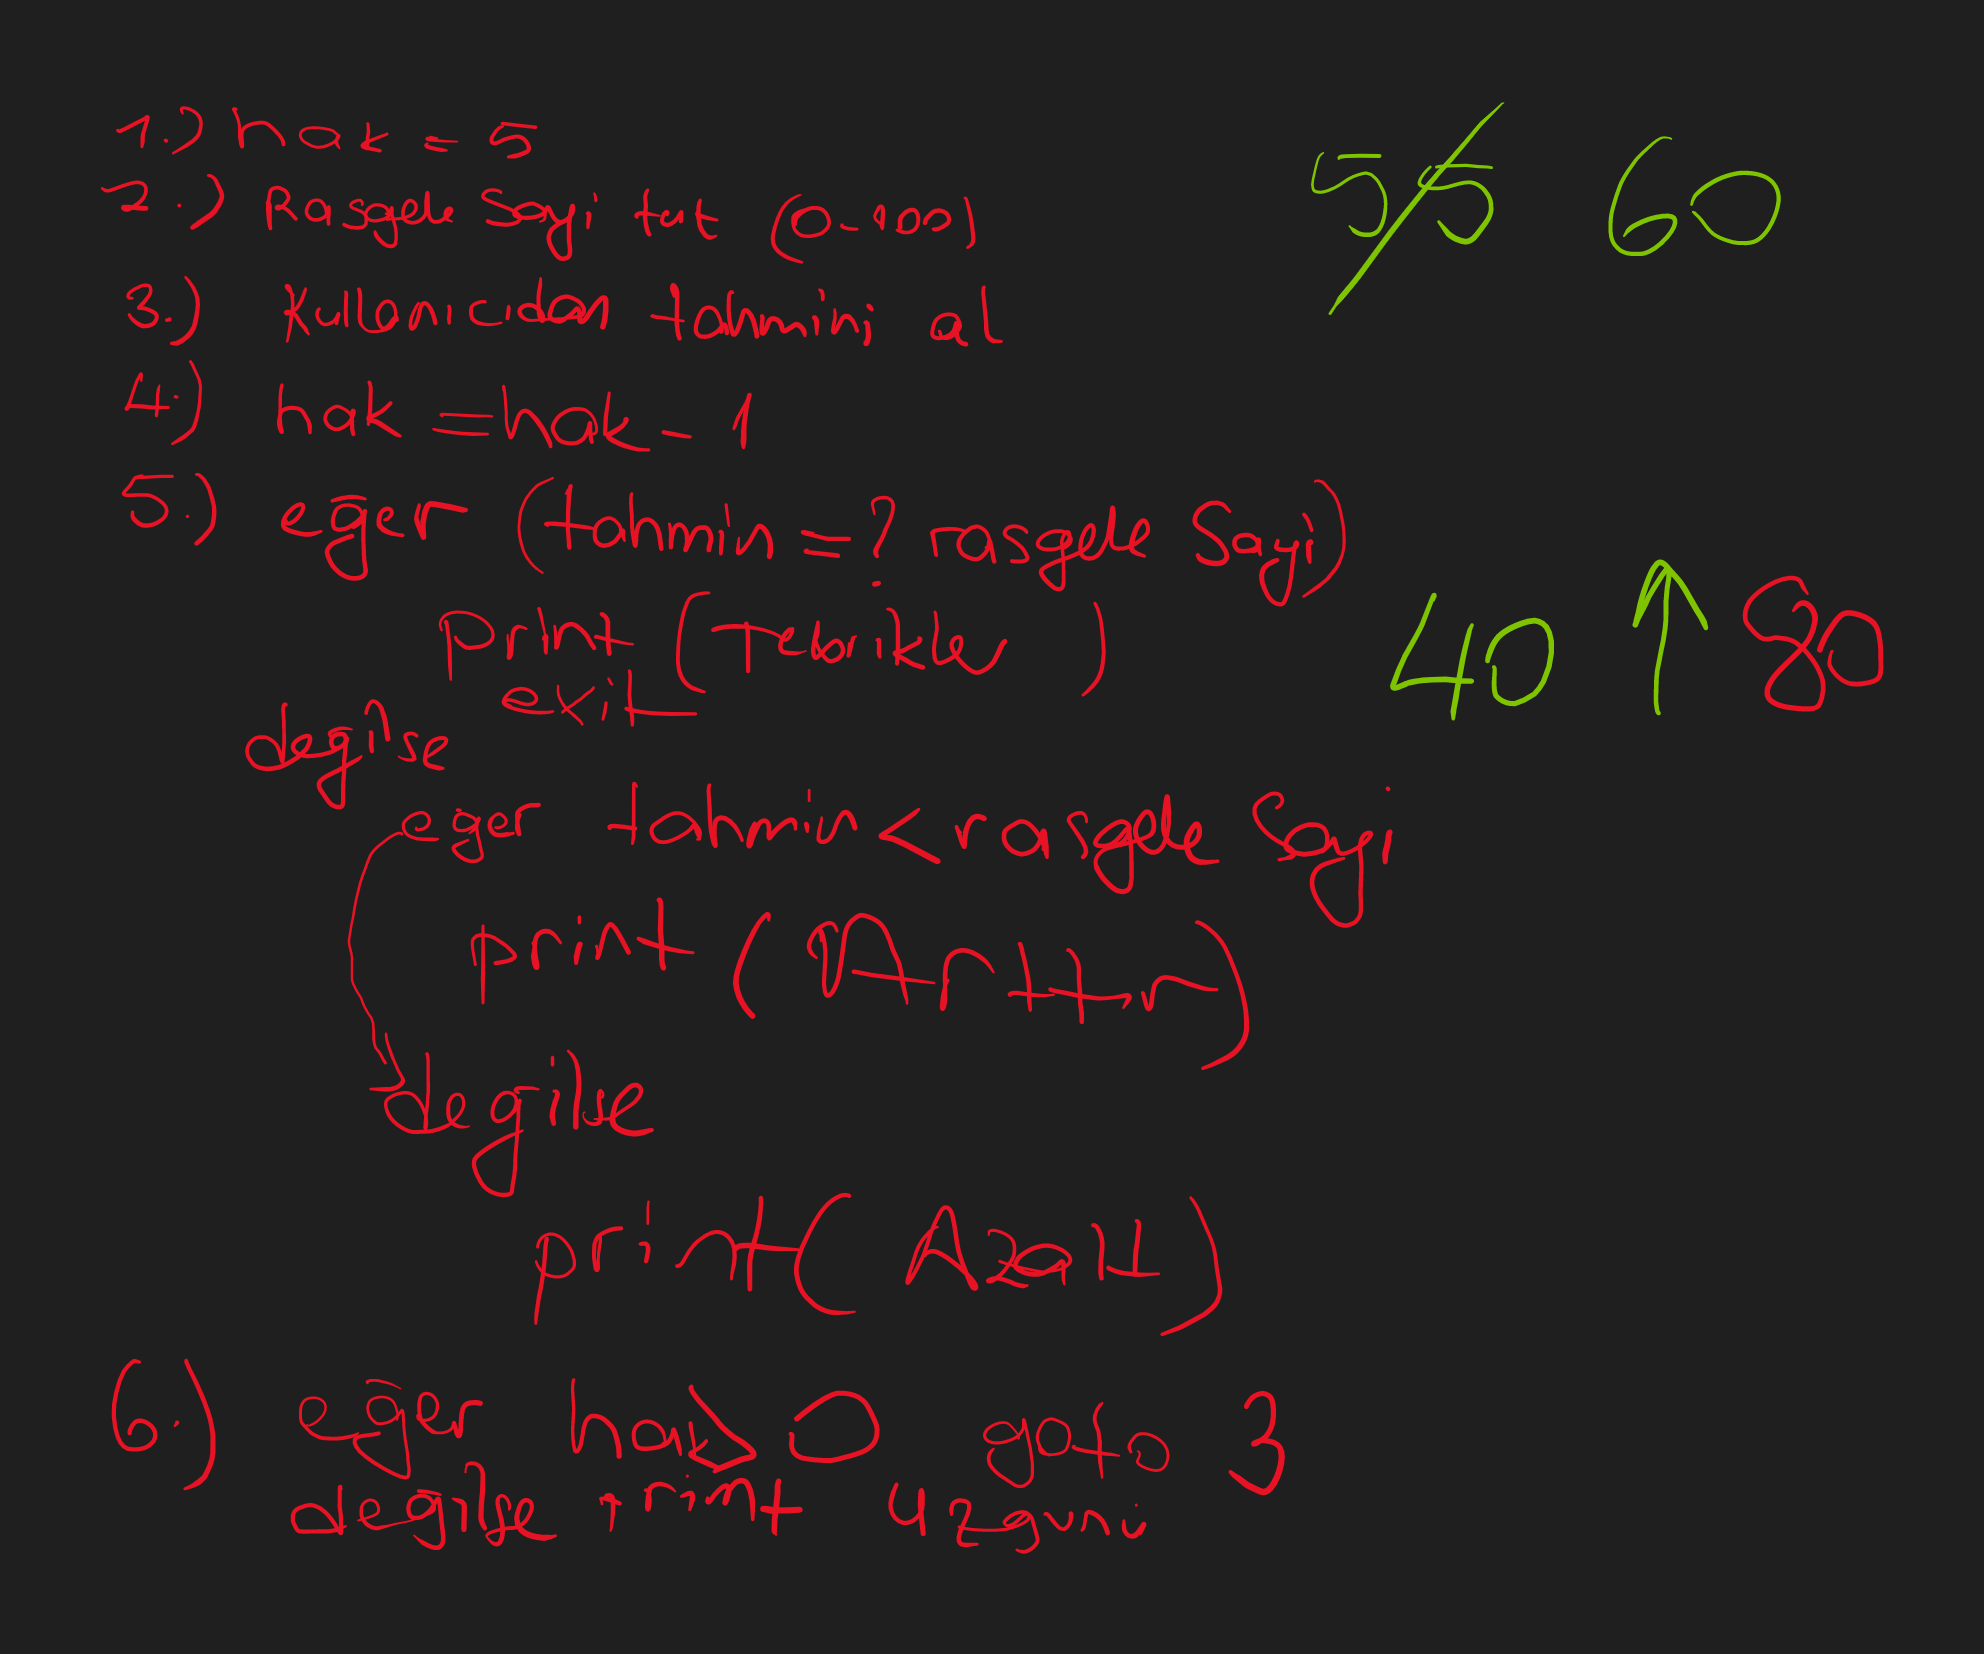 1.) hak = 5
2.) Rasgele Sayi tut (0-100)
3.) kullanicidan tahmini al
4.) hak = hak - 1
5.) eğer (tahmin =? rasgele Sayi)
print (Tebrikler)
exit
değilse
eger tahmin < rasgele Sayi
print (Arttır)
değilse
print (Azalt)
6.) eğer hak > 0 goto 3
değilse print uzgunu
55 60
40 ↑ 80